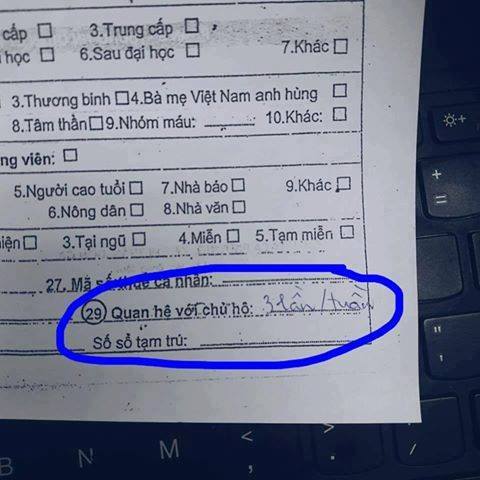 cấp ☐ 3.Trung cấp ☐
học ☐ 6.Sau đại học ☐ 7.Khác ☐
3.Thương binh ☐ 4.Bà mẹ Việt Nam anh hùng ☐
8.Tâm thần ☐ 9.Nhóm máu: 10.Khác: ☐
ng viên: ☐
5.Người cao tuổi ☐ 7.Nhà báo ☐ 9.Khác ☐
6.Nông dân ☐ 8.Nhà văn ☐
iện ☐ 3.Tại ngũ ☐ 4.Miễn ☐ 5.Tạm miễn ☐
27. Mã số thuế cá nhân:
29 Quan hệ với chủ hộ: 3 lần/tuần
Số sổ tạm trú:
B N M < ,
+ =
" '